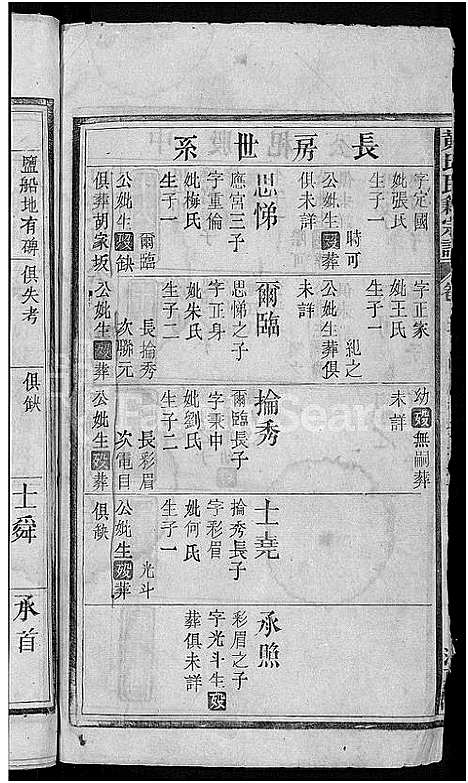 長房世系
字定國
妣張氏
生子一
時可
公妣生歿葬
俱未詳
思悌
應宮三子
字重倫
妣梅氏
生子一
爾臨
公妣生歿缺
俱葬胡家坂
字正家
妣王氏
生子一
紀之
公妣生歿葬俱
未詳
爾臨
思悌之子
字正身
妣朱氏
生子二
長掄秀
次聯元
公妣生歿葬
幼歿無嗣葬
未詳
掄秀
爾臨長子
字秉中
妣劉氏
生子二
長彩眉
次電目
公妣生歿葬
俱缺
士堯
掄秀長子
字彩眉
妣何氏
生子一
光斗
公妣生歿葬
俱缺
承照
彩眉之子
字光斗生歿
葬俱未詳
鹽船地有碑
俱失考
俱缺
士舜
承首